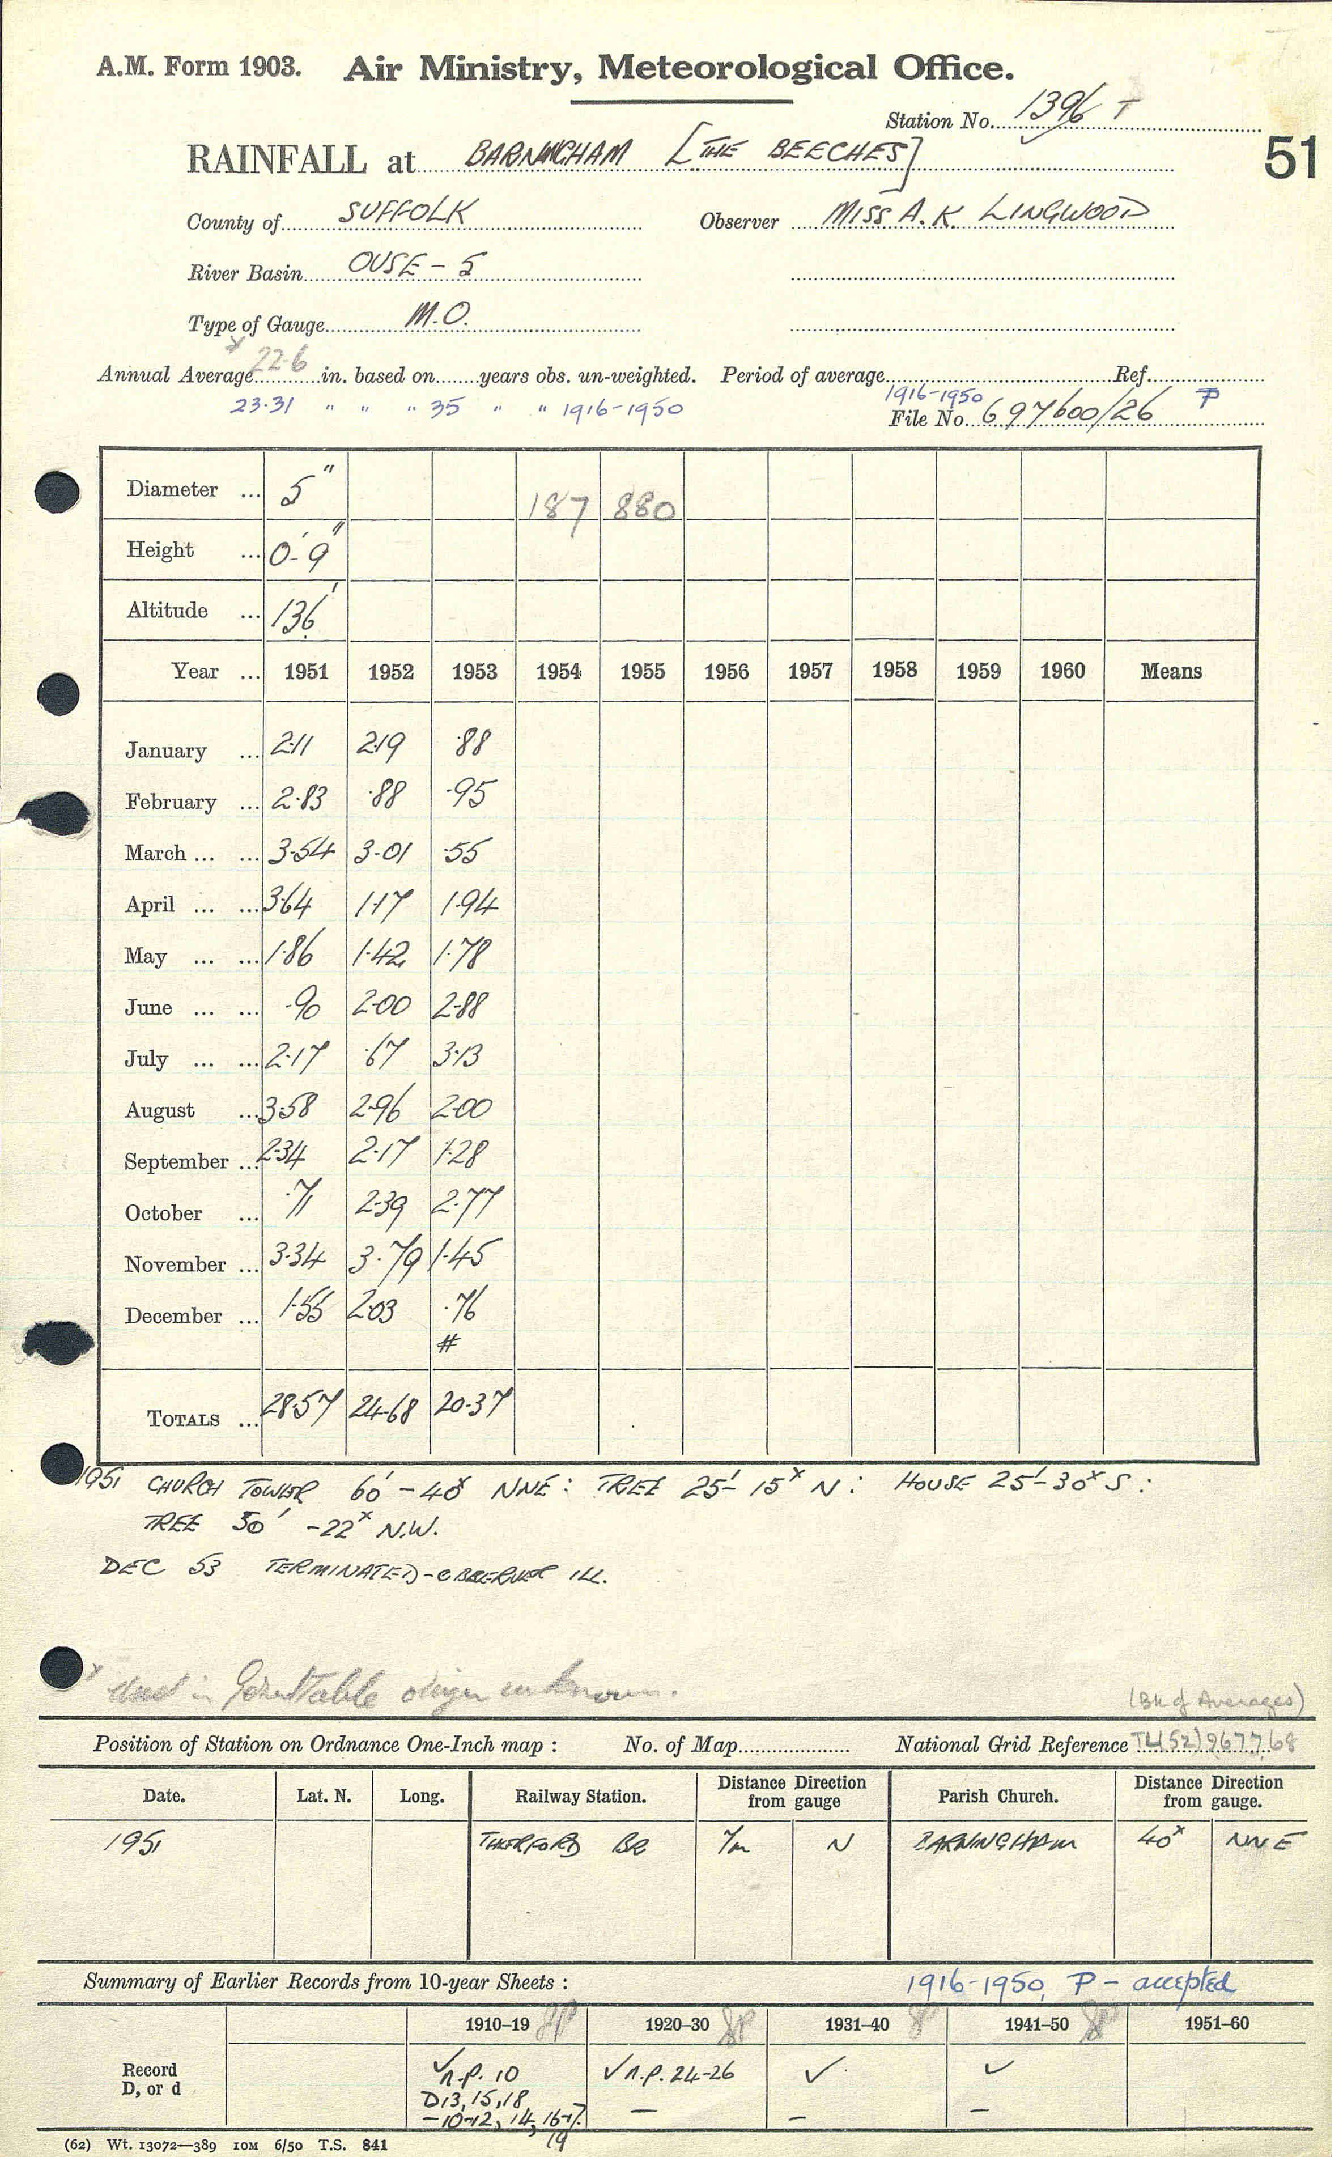 A.M. Form 1903. Air Ministry, Meteorological Office.
Station No. 1396 T
51
RAINFALL at BARNINGHAM [THE BEECHES]
County of SUFFOLK Observer MISS A. K. LINGWOOD
River Basin OUSE - 5
Type of Gauge M.O.
Annual Average x 22.6 in. based on years obs. un-weighted. Period of average 1916-1950 Ref.
23.31 " " " 35 " " 1916-1950 File No. 697600/26 P
Diameter ... 5" 187 880
Height ... 0'-9"
Altitude ... 136'
Year ... 1951 1952 1953 1954 1955 1956 1957 1958 1959 1960 Means
January ... 2.11 2.19 .88
February ... 2.83 .88 .95
March ... ... 3.54 3.01 .55
April ... ... 3.64 1.17 1.94
May ... ... 1.86 1.42 1.78
June ... ... .90 2.00 2.88
July ... ... 2.17 .67 3.13
August ... 3.58 2.96 2.00
September ... 2.34 2.17 1.28
October ... .71 2.39 2.77
November ... 3.34 3.79 1.45
December ... 1.55 2.03 .76
#
TOTALS ... 28.57 24.68 20.37
1951 CHURCH TOWER 60' - 40x NNE : TREE 25'- 15x N : HOUSE 25'- 30x S :
TREE 50' - 22x N.W.
DEC 53 TERMINATED - OBSERVER ILL.
x used in Gen Table origin unknown.
(Bk of Averages)
Position of Station on Ordnance One-Inch map : No. of Map National Grid Reference TL(52)967768
Date. Lat. N. Long. Railway Station. Distance Direction from gauge Parish Church. Distance Direction from gauge.
1951 THETFORD BR 7m N BARNINGHAM 40x NNE
Summary of Earlier Records from 10-year Sheets : 1916-1950, P - accepted
1910–19 1920–30 1931–40 1941–50 1951–60
Record D, or d ✓ n.p. 10 ✓ n.p. 24-26 ✓ ✓
D13, 15, 18 — — —
— 10-12, 14, 16-17.
19
(62) Wt. 13072—389 10M 6/50 T.S. 841